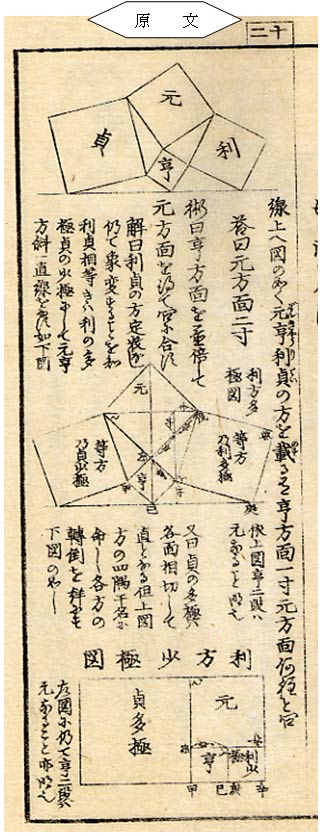 原文
十二
元
利
亨
貞
線上へ図のごとく元亨利貞の方を載る亨方面一寸元方面何程と問
答曰元方面二寸
術曰亨方面を置倍して
元方面を得て問に合す
解曰利貞の方定数なく
仍て象変することを知
利貞相等きハ利の多
極貞の少極にして元亨
方斜一直線をなす如下図
利方多
極図
元
等方
乃利多極
亨
等方
乃貞少極
依上図亨二段ハ
元なること明也
又曰貞の多極ハ
各面相切して
直となる但上図
方の四隅干名に
命し各方の
転倒を解も
下図のごとし
利方少極図
元
利少極
亨
貞多極
辛
己
甲
左図に仍て亨二段
元なること亦明也